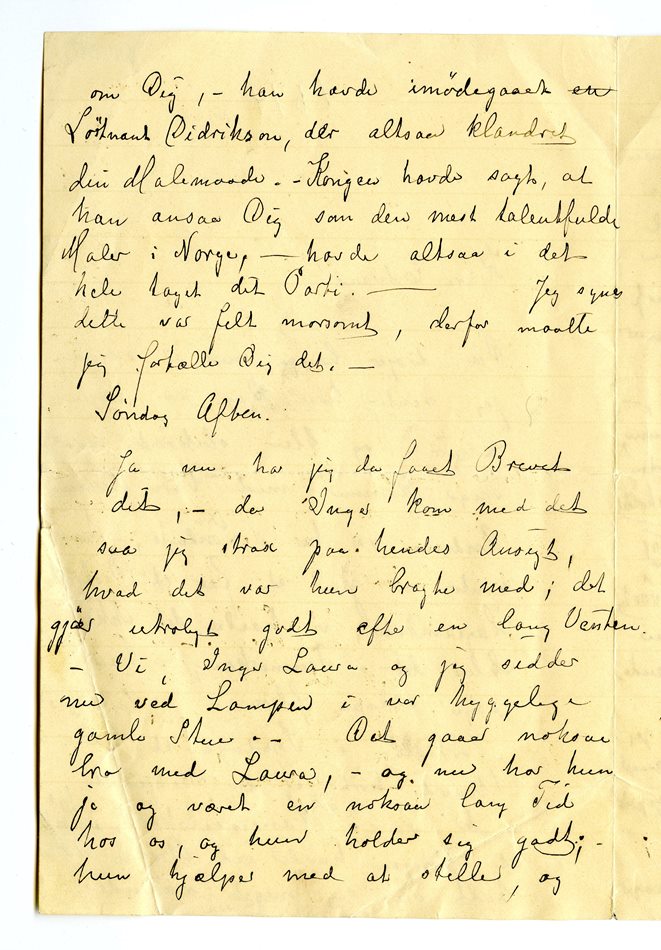 om Dig, – han havde imødegaaet en
Løitnant Didrikson, der altsaa klandret
din Malemaade. – Kongen havde sagt, at
han ansaa Dig som den mest talentfulde
Maler i Norge, – havde altsaa i det
hele taget dit Parti. — Jeg synes
dette var felt morsomt, derfor maatte
jeg fortælle Dig det. –
Søndag Aften.
Ja nu har jeg da faaet Brevet
dit, – da Inger kom med det
saa jeg strax paa hendes Ansigt,
hvad det var hun bragte med; det
gjør utroligt godt efte en lang Venten.
– Vi, Inger Laura og jeg sidder
nu ved Lampen i vor hyggelige
gamle Stue. – Det gaaer noksaa
bra med Laura, – og nu har hun
jo og været en noksaa lang Tid
hos os, og hun holder sig godt; –
hun hjælper med at stelle, og